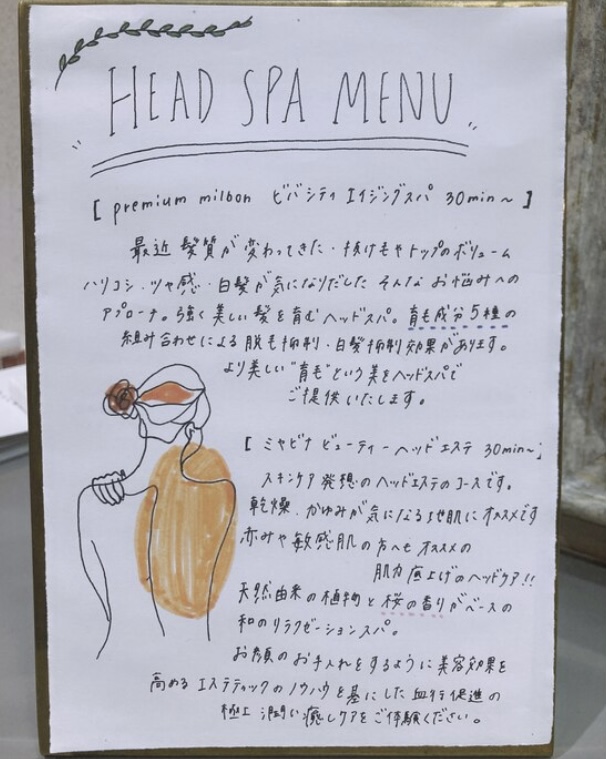 HEAD SPA MENU
[ premium milbon ビバシティ エイジングスパ 30min〜 ]
最近 髪質が変わってきた・抜け毛やトップのボリューム
ハリコシ・ツヤ感・白髪が気になりだした そんなお悩みへの
アプローチ。強く美しい髪を育むヘッドスパ。育毛成分5種の
組み合わせによる脱毛抑制・白髪抑制効果があります。
より美しい"育毛"という美をヘッドスパで
ご提供いたします。
[ ミヤビナ ビューティーヘッドエステ 30min〜]
スキンケア発想のヘッドエステのコースです。
乾燥、かゆみが気になる地肌にオススメです
赤みや敏感肌の方へもオススメの
肌力底上げのヘッドケア!!
天然由来の植物と桜の香りがベースの
和のリラクゼーションスパ。
お顔のお手入れをするように美容効果を
高めるエステティックのノウハウを基にした血行促進の
極上潤い癒しケアをご体験ください。